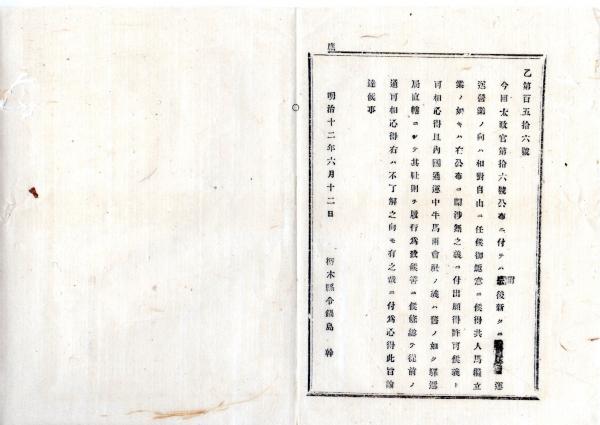 乙第百五拾六號
今囘太政官第拾六號公布ニ付テハ 後新タニ 運
送營業ノ向ハ相對自由ニ任候御趣意ニ候得共人馬繼立
業ノ如キハ右公布ニ關涉無之義ニ付出願得許可候義ト
可相心得且內國通運中牛馬兩會社ノ義ハ舊ノ如ク驛遞
局直轄ニシテ其社則ヲ履行爲致候筈ニ候條總テ從前ノ
通可相心得右ハ不了解之向モ有之哉ニ付爲心得此旨諭
達候事
明治十二年六月十二日
栃木縣令鍋島 幹